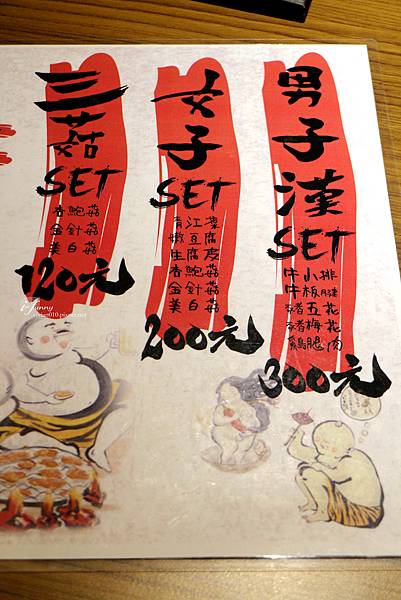 男子漢
SET
牛小排
牛板腱
豬五花
豬梅花
雞腿肉
300元
女子
SET
青江菜
嫩豆腐
生腐皮
香鮑菇
金針菇
美白菇
200元
三菇
SET
香鮑菇
金針菇
美白菇
120元